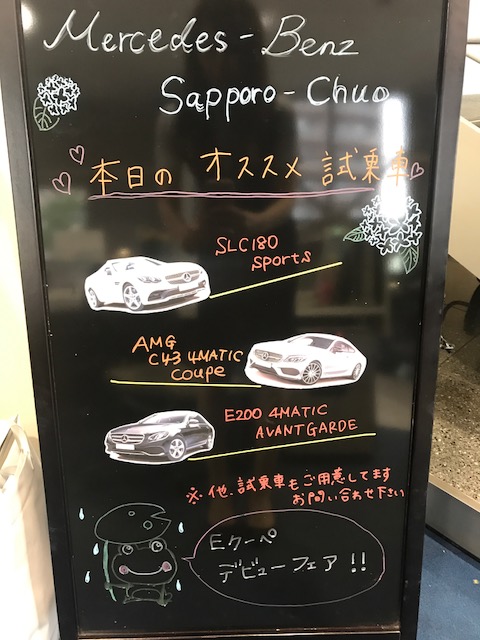 Mercedes-Benz
Sapporo-Chuo
本日の オススメ 試乗車
SLC180
sports
AMG
C43 4MATIC
coupe
E200 4MATIC
AVANTGARDE
※他、試乗車もご用意してます
お問い合わせ下さい
Eクーペ
デビューフェア!!